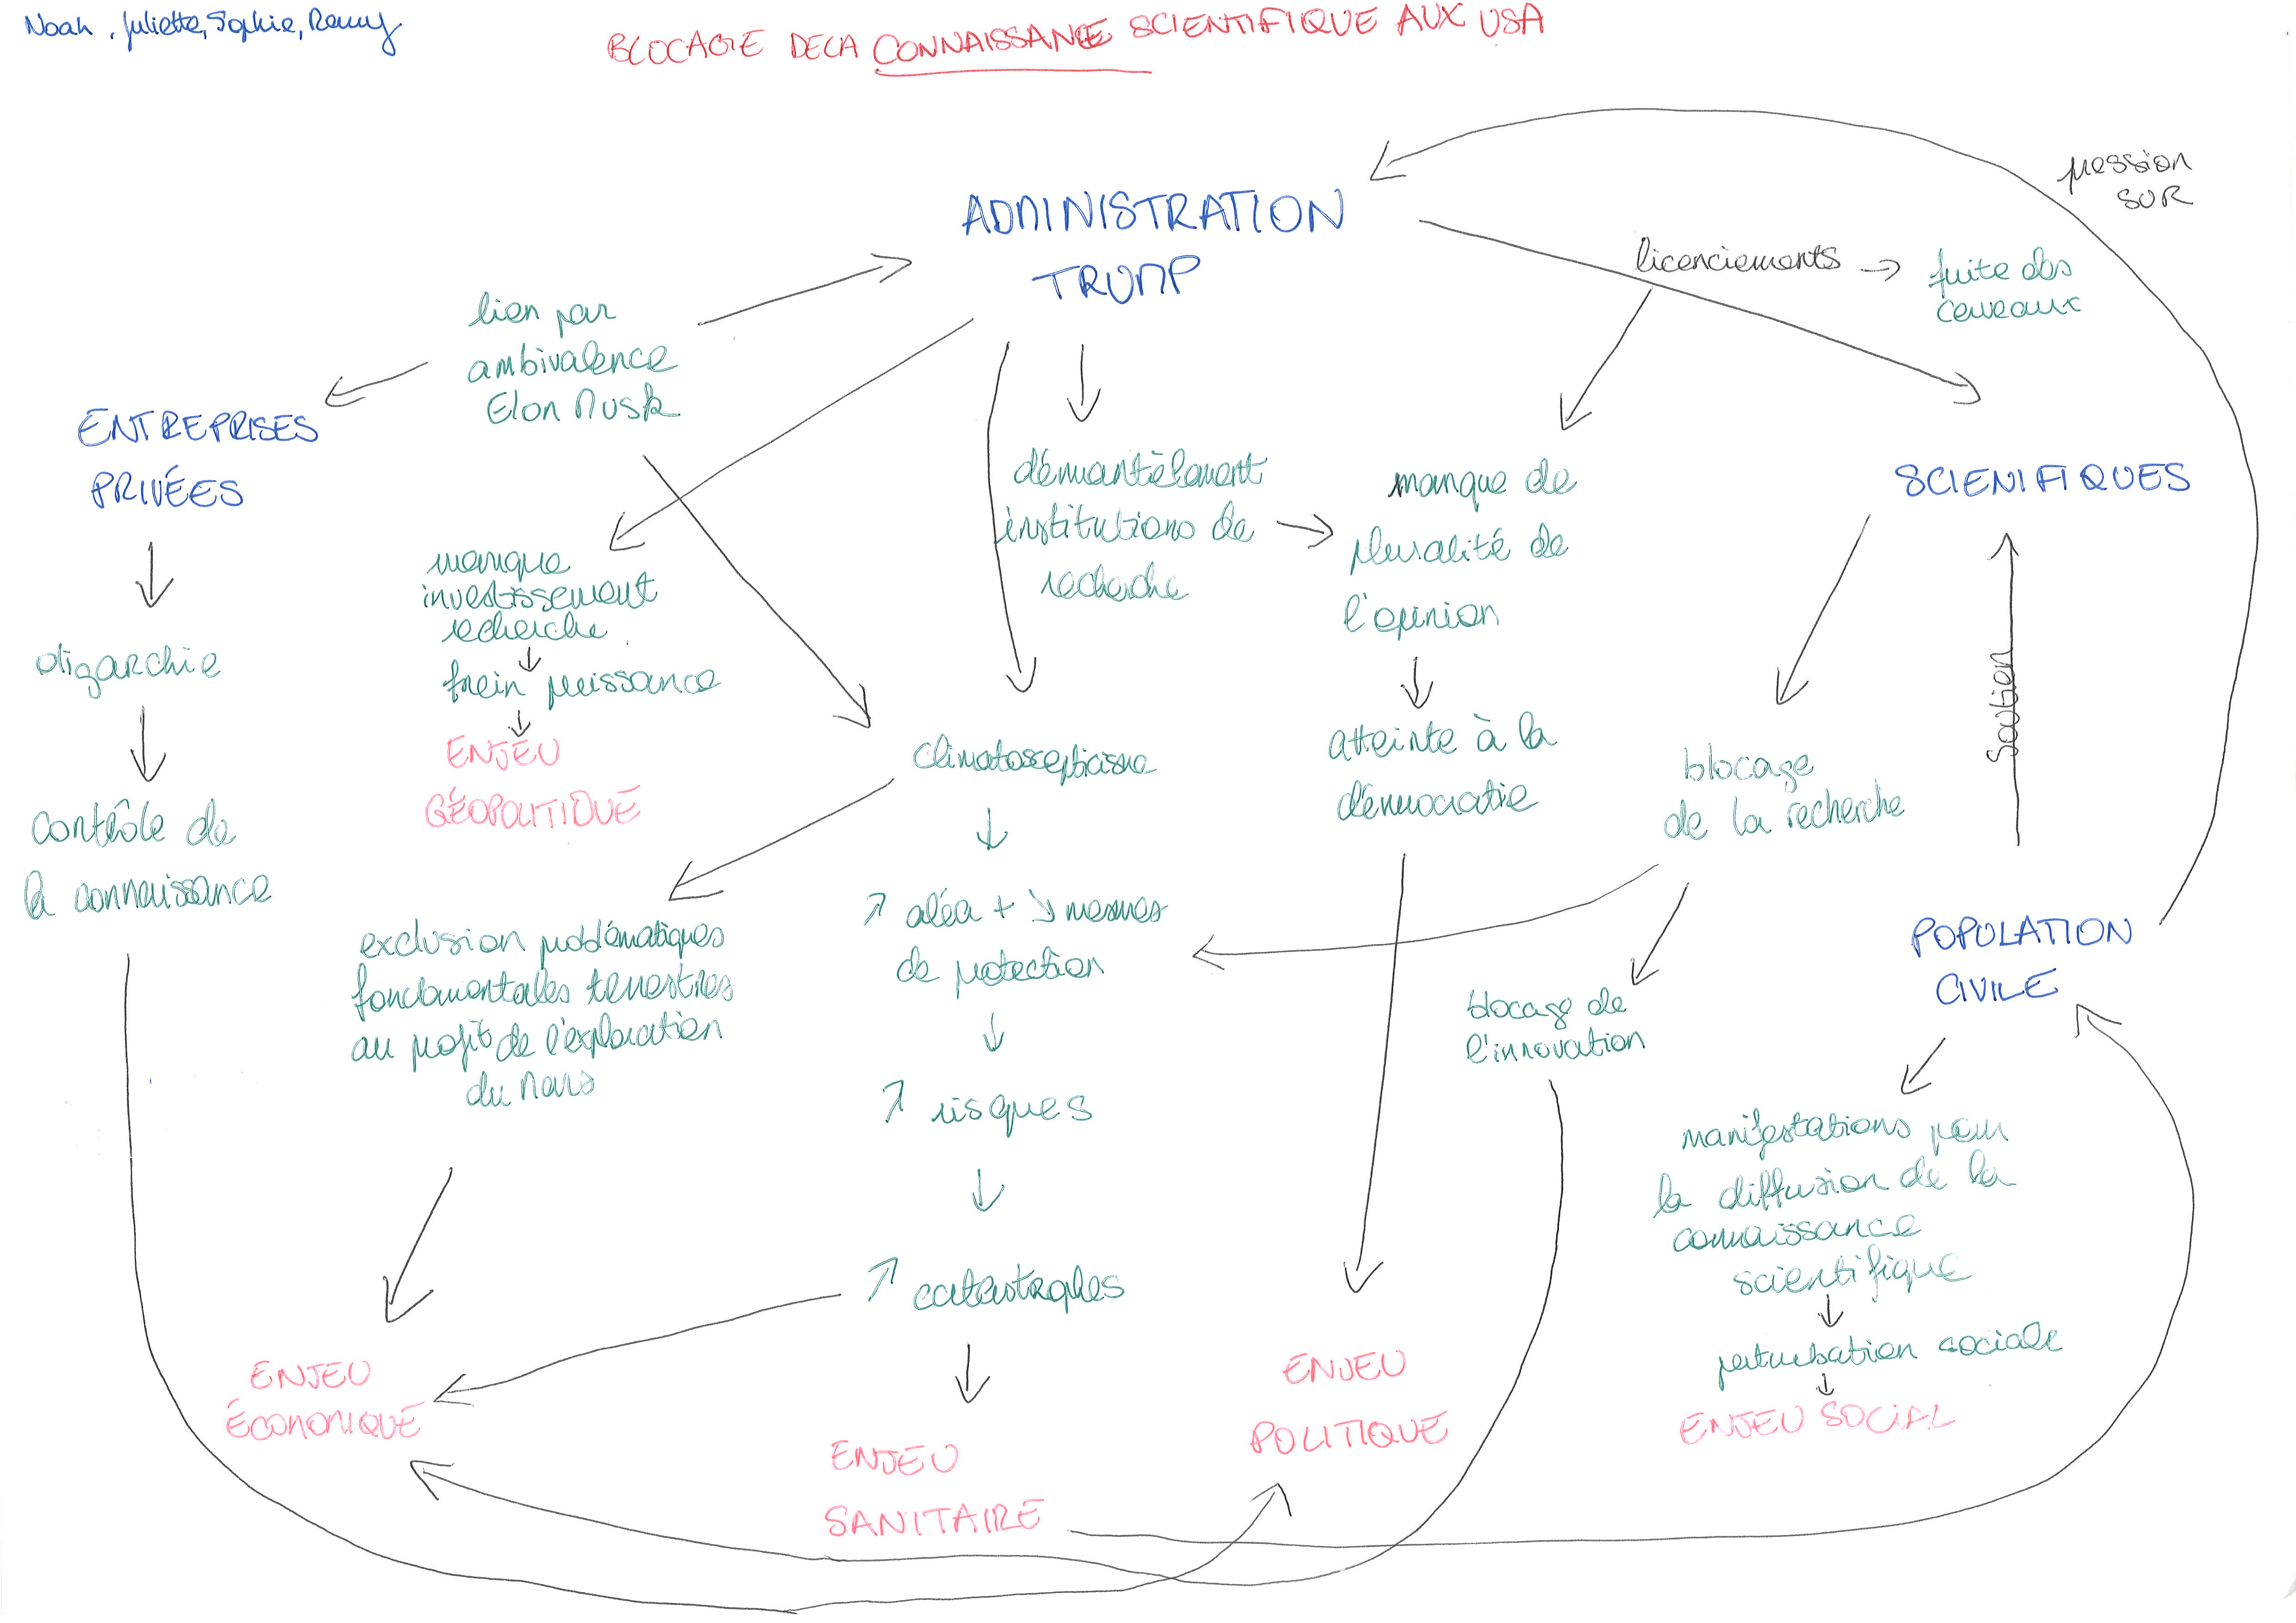 Noah, Juliette, Sophie, Remy
BLOCAGE DE LA CONNAISSANCE SCIENTIFIQUE AUX USA
pression
SUR
ADMINISTRATION
TRUMP
licenciements → fuite des
cerveaux
lien par
ambivalence
Elon Musk
ENTREPRISES
PRIVÉES
démantèlement
institutions de
recherche
manque de
pluralité de
l'opinion
SCIENIFIQUES
manque
investissement
recherche
↓
frein puissance
↓
ENJEU
GÉOPOLITIQUE
oligarchie
contrôle de
la connaissance
climatoscepticisme
atteinte à la
démocratie
blocage
de la recherche
Soutien
↗ aléa + ↘ mesures
de protection
exclusion problématiques
fondamentales terrestres
au profit de l'exploration
du Mars
blocage de
l'innovation
POPULATION
CIVILE
↗ risques
↗ catastrophes
manifestations pour
la diffusion de la
connaissance
scientifique
↓
perturbation sociale
↓
ENJEU SOCIAL
ENJEU
ÉCONOMIQUE
ENJEU
SANITAIRE
ENJEU
POLITIQUE